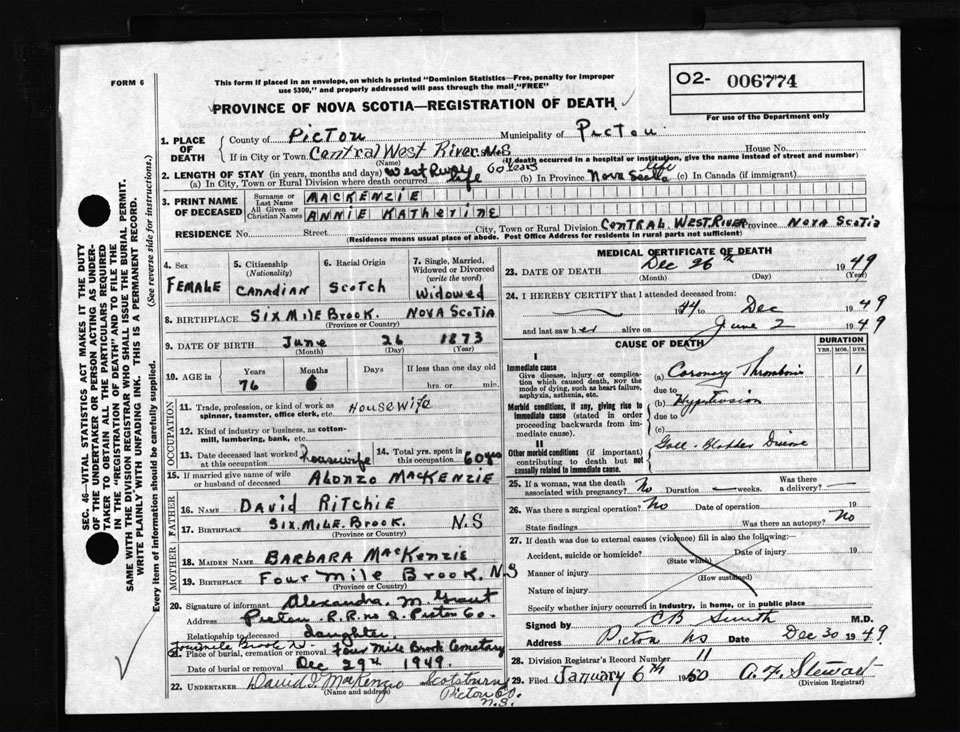 FORM 6
This form if placed in an envelope, on which is printed "Dominion Statistics—Free, penalty for improper
use $300," and properly addressed will pass through the mail "FREE"
O2- 006774
For use of the Department only
PROVINCE OF NOVA SCOTIA—REGISTRATION OF DEATH
1. PLACE OF DEATH
County of Pictou Municipality of Pictou
If in City or Town Central West River N.S House No.
(Name) (If death occurred in a hospital or institution, give the name instead of street and number)
2. LENGTH OF STAY (in years, months and days) West River 60 years life
(a) In City, Town or Rural Division where death occurred life (b) In Province Nova Scotia (c) In Canada (if immigrant)
3. PRINT NAME OF DECEASED
Surname or Last Name MACKENZIE
All Given or Christian Names ANNIE KATHERINE
RESIDENCE No. Street City, Town or Rural Division CENTRAL WEST RIVER Province NOVA SCOTIA
(Residence means usual place of abode. Post Office Address for residents in rural parts not sufficient)
4. Sex FEMALE
5. Citizenship (Nationality) CANADIAN
6. Racial Origin SCOTCH
7. Single, Married, Widowed or Divorced (write the word) Widowed
8. BIRTHPLACE SIX MILE BROOK. NOVA SCOTIA
(Province or Country)
9. DATE OF BIRTH June 26 1873
(Month) (Day) (Year)
10. AGE in Years 76 Months 6 Days If less than one day old
hrs. or min.
OCCUPATION
11. Trade, profession, or kind of work as spinner, teamster, office clerk, etc. Housewife
12. Kind of industry or business, as cotton-mill, lumbering, bank, etc.
13. Date deceased last worked at this occupation housewife
14. Total yrs. spent in this occupation 60 yrs
15. If married give name of wife or husband of deceased ALONZO MACKENZIE
FATHER
16. Name DAVID RITCHIE
17. Birthplace SIX MILE BROOK. N.S
(Province or Country)
MOTHER
18. Maiden Name BARBARA MACKENZIE
19. Birthplace FOUR MILE BROOK. N.S
(Province or Country)
20. Signature of informant Alexandra. M. Grant
Address Pictou R.R. no 2. Pictou Co.
Relationship to deceased daughter.
21. Place of burial, cremation or removal Four Mile Brook Cemetary
Date of burial or removal Dec 29th 1949.
22. UNDERTAKER David F. MacKenzie Scotsburn
(Name and address) Pictou Co.
N.S.
MEDICAL CERTIFICATE OF DEATH
23. DATE OF DEATH Dec 26th 1949
(Day) (Year)
24. I HEREBY CERTIFY that I attended deceased from:
1944 to Dec 1949
and last saw her alive on June 2 1949
CAUSE OF DEATH
DURATION
YRS. MOS. DYS.
I
Immediate cause
Give disease, injury or complication which caused death, NOT the mode of dying, such as heart failure, asphyxia, asthenia, etc.
(a) Coronary Thrombosis 1
due to
Morbid conditions, if any, giving rise to immediate cause (stated in order proceeding backwards from immediate cause)
(b) Hypertension
due to
(c)
II
Other morbid conditions (if important) contributing to death but not causally related to immediate cause.
Gall-Bladder Disease
25. If a woman, was the death associated with pregnancy? No Duration — weeks. Was there a delivery? —
26. Was there a surgical operation? No Date of operation 19
State findings Was there an autopsy? No
27. If death was due to external causes (violence) fill in also the following:
Accident, suicide or homicide? Date of injury 19
(State which)
Manner of injury
(How sustained)
Nature of injury
Specify whether injury occurred in industry, in home, or in public place
Signed by CB Smith M.D.
Address Pictou NS Date Dec 30 1949
28. Division Registrar's Record Number 11
29. Filed January 6th 1950 A. F. Stewart
(Division Registrar)
SEC. 46—VITAL STATISTICS ACT MAKES IT THE DUTY
OF THE UNDERTAKER OR PERSON ACTING AS UNDER-
TAKER TO OBTAIN ALL THE PARTICULARS REQUIRED
IN THE "REGISTRATION OF DEATH" AND TO FILE THE
SAME WITH THE DIVISION REGISTRAR WHO SHALL ISSUE THE BURIAL PERMIT.
WRITE PLAINLY WITH UNFADING INK. THIS IS A PERMANENT RECORD.
Every item of information should be carefully supplied. (See reverse side for instructions.)